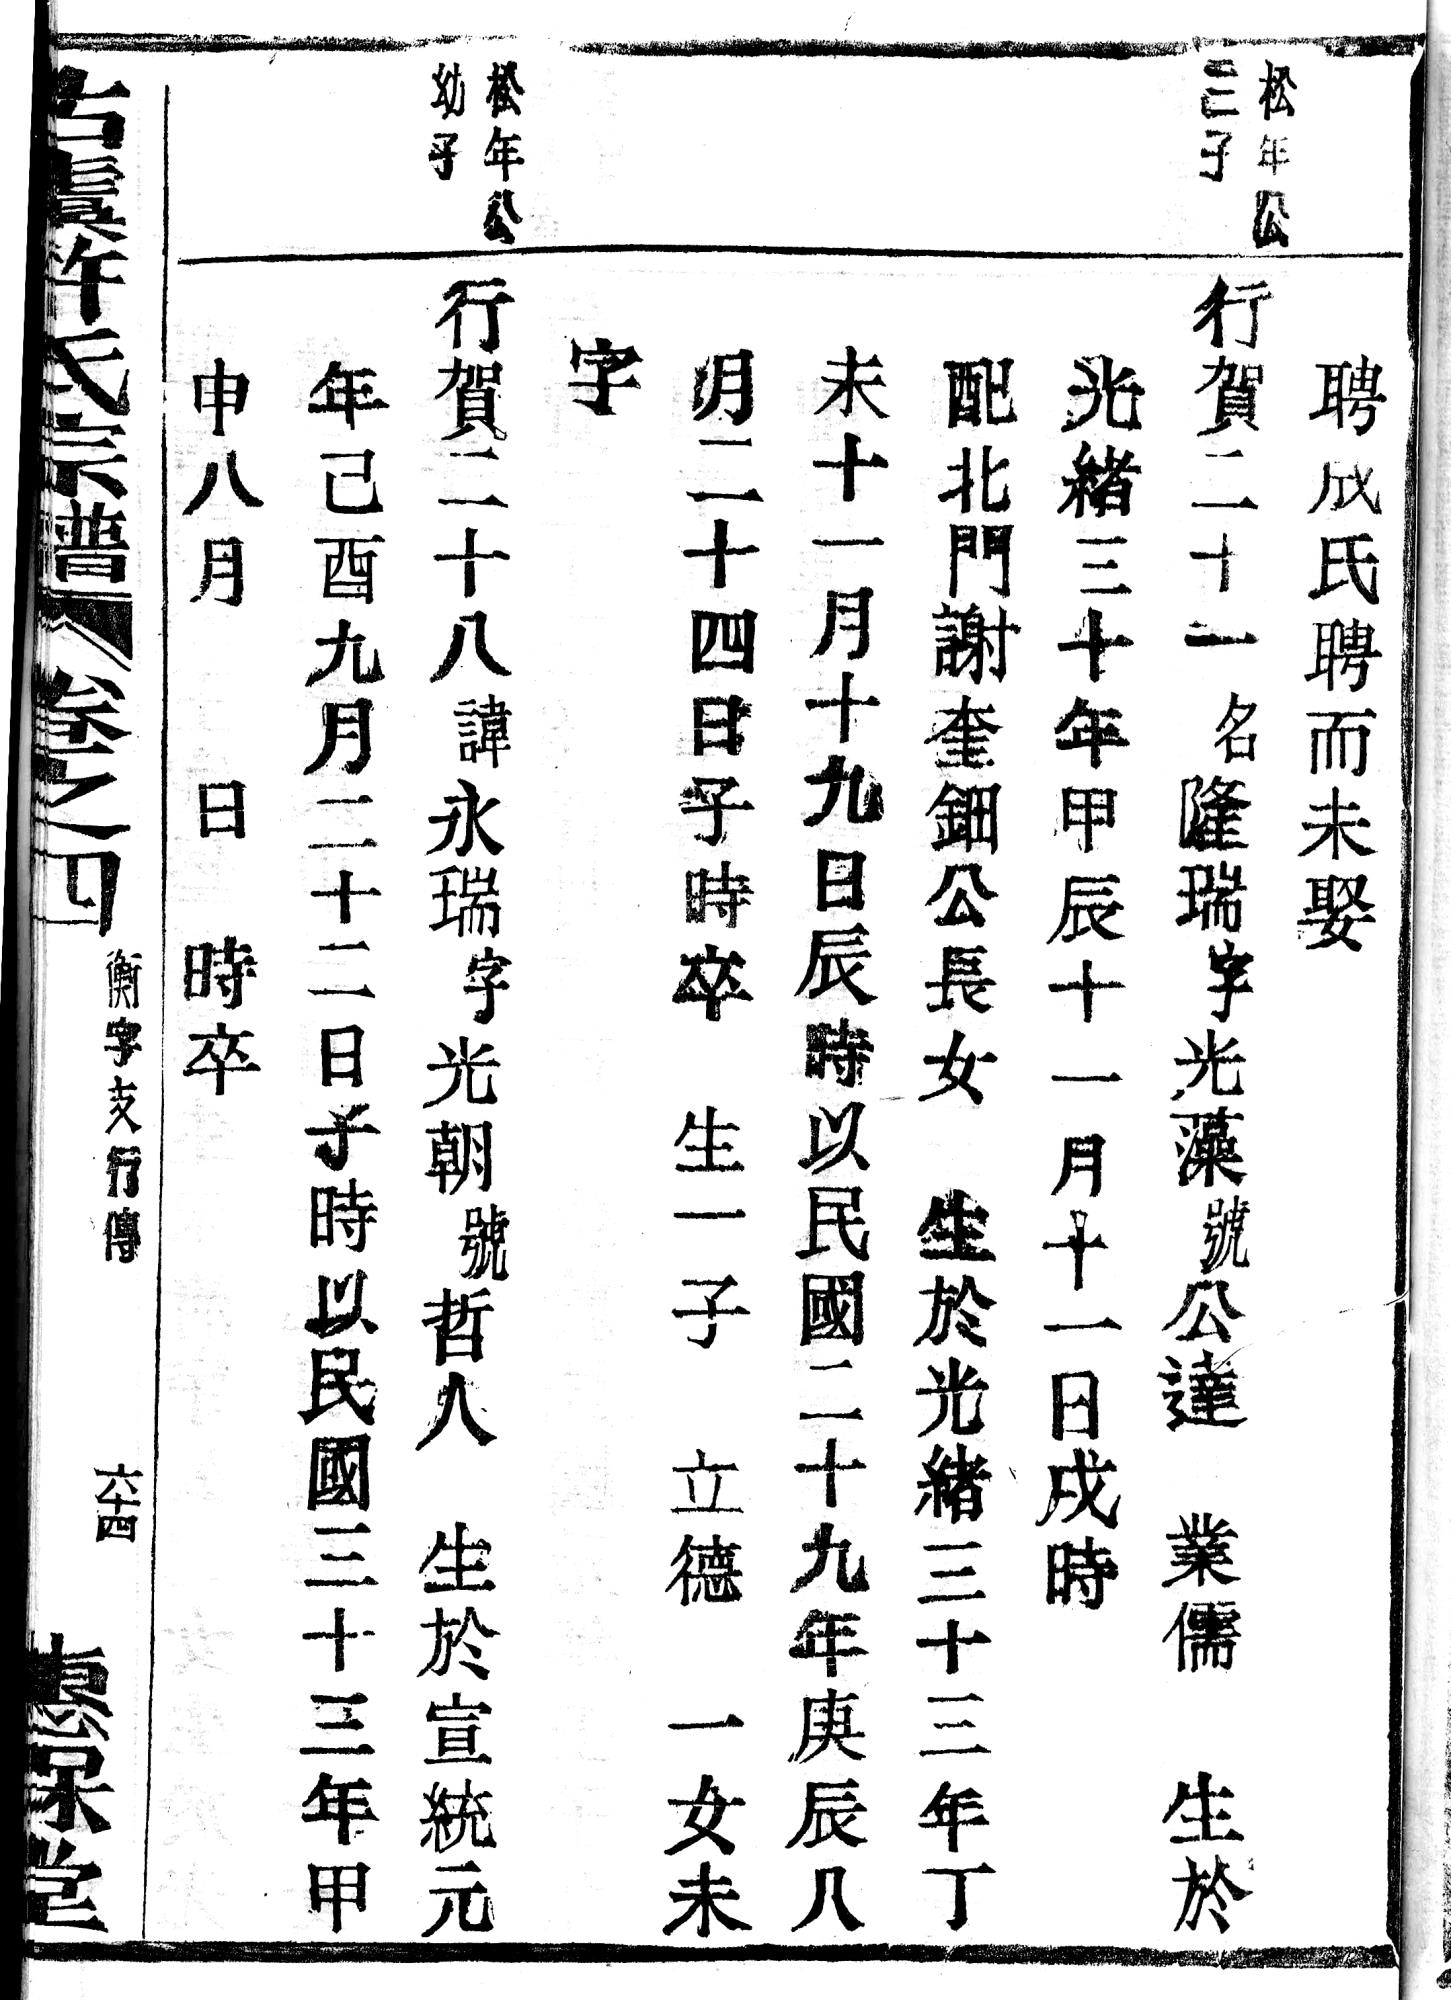 聘成氏聘而未娶
松年公
三子
行賀二十一名隆瑞字光藻號公達 業儒 生於
光緒三十年甲辰十一月十一日戌時
配北門謝奎鈿公長女 生於光緒三十三年丁
未十一月十九日辰時以民國二十九年庚辰八
月二十四日子時卒 生一子 立德 一女未
字
松年公
幼子
行賀二十八諱永瑞字光朝號哲人 生於宣統元
年己酉九月二十二日子時以民國三十三年甲
申八月 日 時卒
古虞許氏宗譜 卷之四 衡字支行傳 六十四 惠保堂